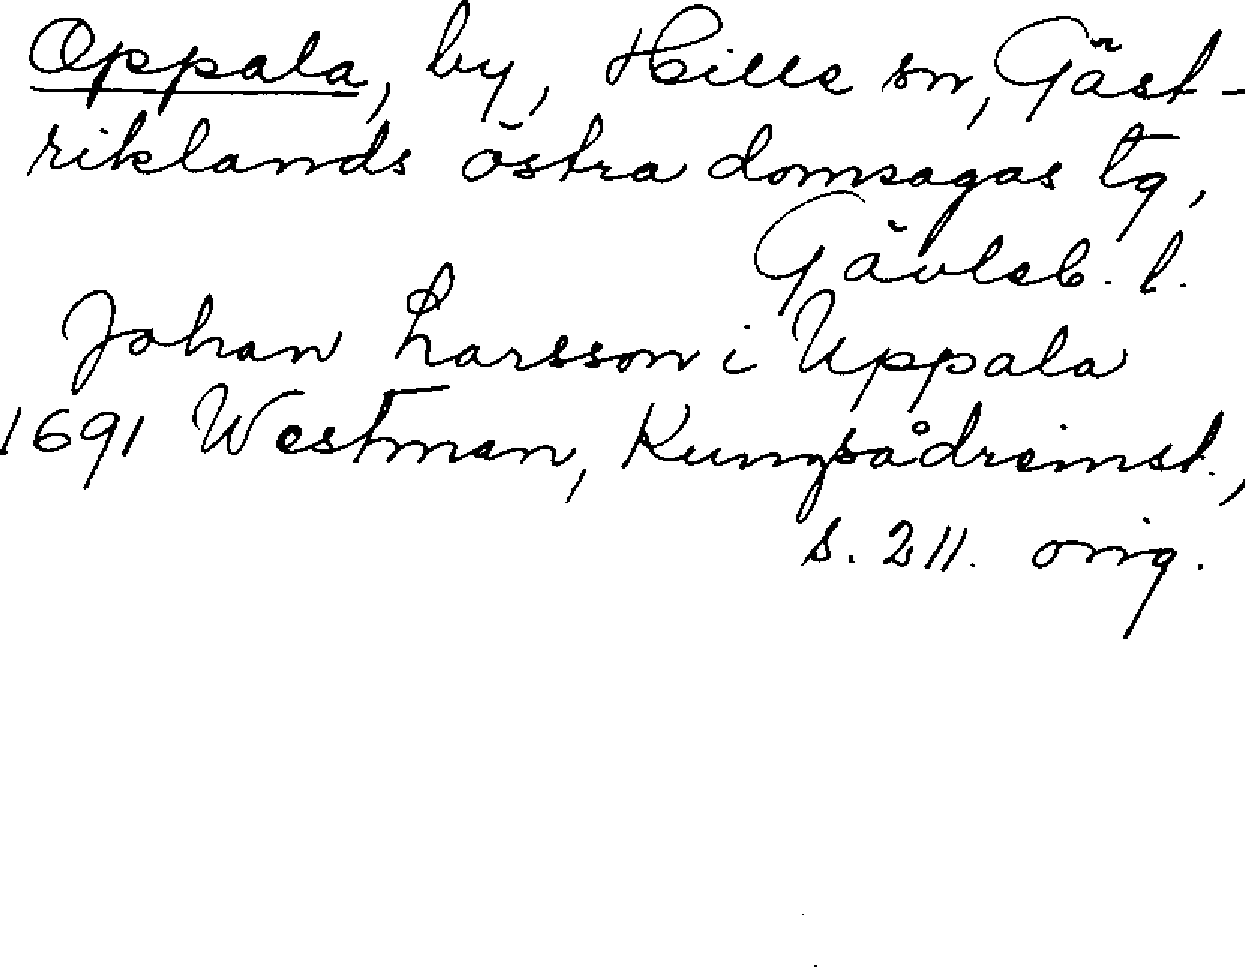 Oppala, by, Hille sn, Gäst-
riklands östra domsagas tg,
Gävleb. l.
Johan Larsson i Uppala
1691 Westman, Kungsådreinst.,
s. 211. orig.